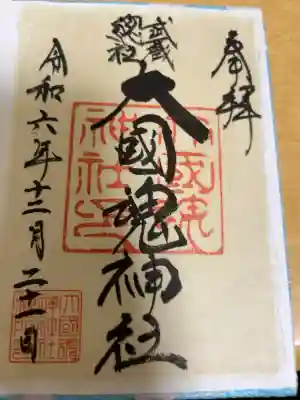 奉拝
武蔵
總社
大國魂神社
令和六年十二月二十一日
大國魂
神社印